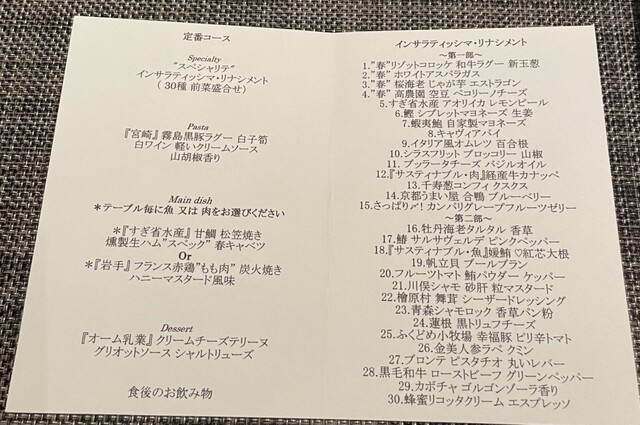 定番コース
Specialty
"スペシャリテ"
インサラティッシマ・リナシメント
( 30種 前菜盛合せ)
Pasta
『宮崎』霧島黒豚ラグー 白子筍
白ワイン 軽いクリームソース
山胡椒香り
Main dish
＊テーブル毎に魚 又は 肉をお選びください
＊『すぎ省水産』甘鯛 松笠焼き
燻製生ハム"スペック" 春キャベツ
Or
＊『岩手』フランス赤鶏"もも肉" 炭火焼き
ハニーマスタード風味
Dessert
『オーム乳業』クリームチーズテリーヌ
グリオットソース シャルトリューズ
食後のお飲み物
インサラティッシマ・リナシメント
～第一部～
1."春"リゾットコロッケ 和牛ラグー 新玉葱
2."春" ホワイトアスパラガス
3."春" 桜海老 じゃが芋 エストラゴン
4."春" 高農園 空豆 ペコリーノチーズ
5.すぎ省水産 アオリイカ レモンピール
6.鰹 シブレットマヨネーズ 生姜
7.蝦夷鮑 自家製マヨネーズ
8.キャヴィアパイ
9.イタリア風オムレツ 百合根
10.シラスフリット ブロッコリー 山椒
11.ブッラータチーズ バジルオイル
12.『サスティナブル・肉』経産牛カナッペ
13.千寿葱コンフィ クスクス
14.京都うまい屋 合鴨 ブルーベリー
15.さっぱり〆! カンパリグレープフルーツゼリー
～第二部～
16.牡丹海老タルタル 香草
17.鰆 サルサヴェルデ ピンクペッパー
18.『サスティナブル・魚』媛鮪♡紅芯大根
19.帆立貝 ブールブラン
20.フルーツトマト 鮪パウダー ケッパー
21.川俣シャモ 砂肝 粒マスタード
22.檜原村 舞茸 シーザードレッシング
23.青森シャモロック 香草パン粉
24.蓮根 黒トリュフチーズ
25.ふくどめ小牧場 幸福豚 ピリ辛トマト
26.金美人参ラペ クミン
27.ブロンテ ピスタチオ 丸いレバー
28.黒毛和牛 ローストビーフ グリーンペッパー
29.カボチャ ゴルゴンゾーラ香り
30.蜂蜜リコッタクリーム エスプレッソ